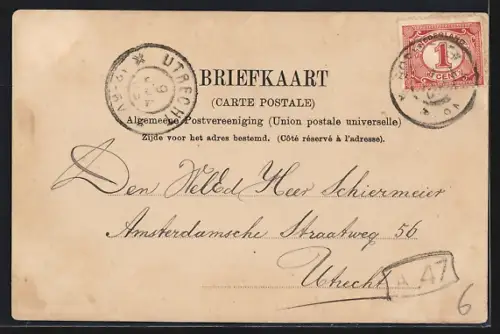 UTRECHT
BRIEFKAART
(CARTE POSTALE)
Algemeene Postvereeniging (Union postale universelle)
Zijde voor het adres bestemd. (Côté réservé à l'adresse).
NEDERLAND
1
CENT
Den WelEd Heer Schiermeier
Amsterdamsche Straatweg 56
Utrecht
A 47
6